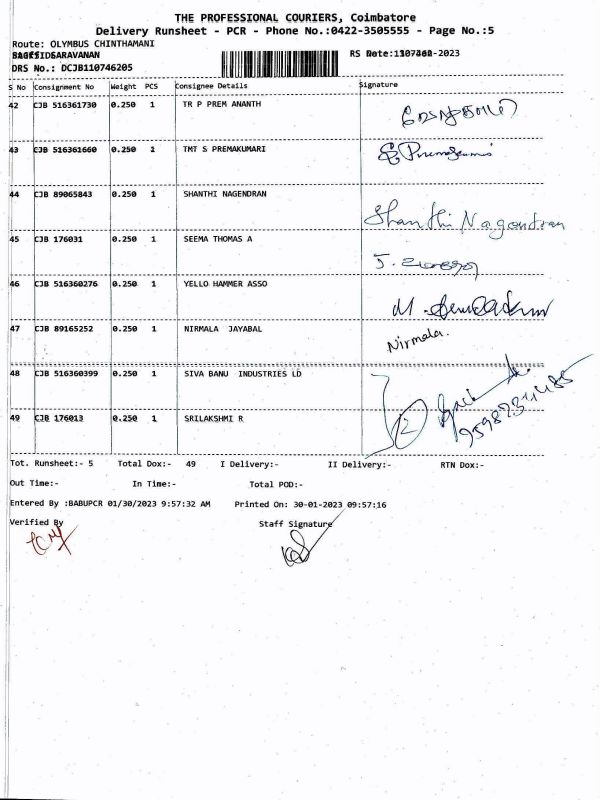 THE PROFESSIONAL COURIERS, Coimbatore
Delivery Runsheet - PCR - Phone No.:0422-3505555 - Page No.:5
Route: OLYMBUS CHINTHAMANI
DRS No.: DCJB110746205
S No Consignment No Weight PCS Consignee Details Signature
42 CJB 516361730 0.250 1 TR P PREM ANANTH
43 CJB 516361660 0.250 1 TMT S PREMAKUMARI S. Premakumari
44 CJB 89065843 0.250 1 SHANTHI NAGENDRAN Shanthi Nagendran
45 CJB 176031 0.250 1 SEEMA THOMAS A
46 CJB 516360276 0.250 1 YELLO HAMMER ASSO
47 CJB 89165252 0.250 1 NIRMALA JAYABAL Nirmala.
48 CJB 516360399 0.250 1 SIVA BANU INDUSTRIES LD
49 CJB 176013 0.250 1 SRILAKSHMI R 2
Tot. Runsheet:- 5 Total Dox:- 49 I Delivery:- II Delivery:- RTN Dox:-
Out Time:- In Time:- Total POD:-
Entered By :BABUPCR 01/30/2023 9:57:32 AM Printed On: 30-01-2023 09:57:16
Verified By Staff Signature